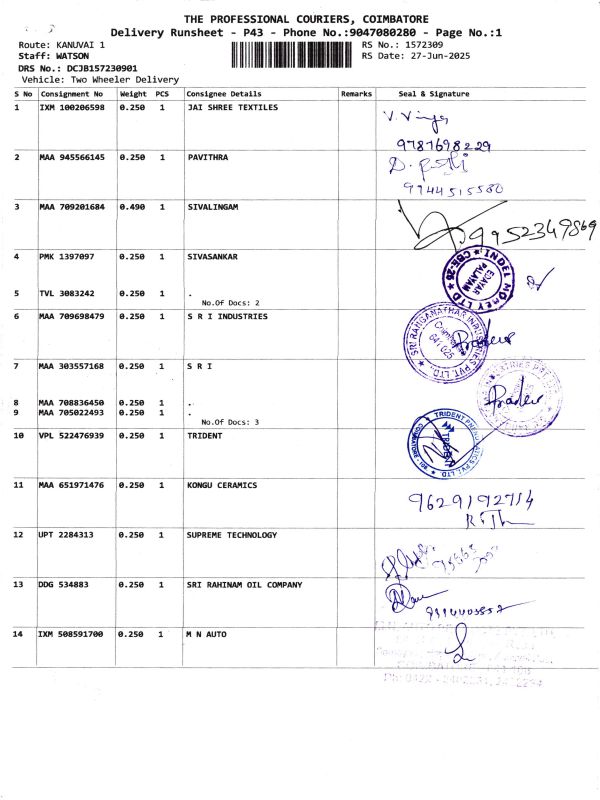 THE PROFESSIONAL COURIERS, COIMBATORE
Delivery Runsheet - P43 - Phone No.:9047080280 - Page No.:1
Route: KANUVAI 1
RS No.: 1572309
Staff: WATSON
RS Date: 27-Jun-2025
DRS No.: DCJB157230901
Vehicle: Two Wheeler Delivery
S No Consignment No Weight PCS Consignee Details Remarks Seal & Signature
1 IXM 100206598 0.250 1 JAI SHREE TEXTILES
9787698229
2 MAA 945566145 0.250 1 PAVITHRA
9744515580
3 MAA 709201684 0.490 1 SIVALINGAM
9952349869
4 PMK 1397097 0.250 1 SIVASANKAR
INDEL MONEY LTD
CBE-25
EDAYAR PALAYAM
5 TVL 3083242 0.250 1 .
No.Of Docs: 2
6 MAA 709698479 0.250 1 S R I INDUSTRIES
SRI RANGANATHAR INDUSTRIES PVT. LTD.
Coimbatore
641 025
7 MAA 303557168 0.250 1 S R I
8 MAA 708836450 0.250 1 .
9 MAA 705022493 0.250 1 .
No.Of Docs: 3
10 VPL 522476939 0.250 1 TRIDENT
TRIDENT PNEUMATICS PVT. LTD.
TRIDENT
11 MAA 651971476 0.250 1 KONGU CERAMICS
9629192714
12 UPT 2284313 0.250 1 SUPREME TECHNOLOGY
13 DDG 534883 0.250 1 SRI RAHINAM OIL COMPANY
14 IXM 508591700 0.250 1 M N AUTO